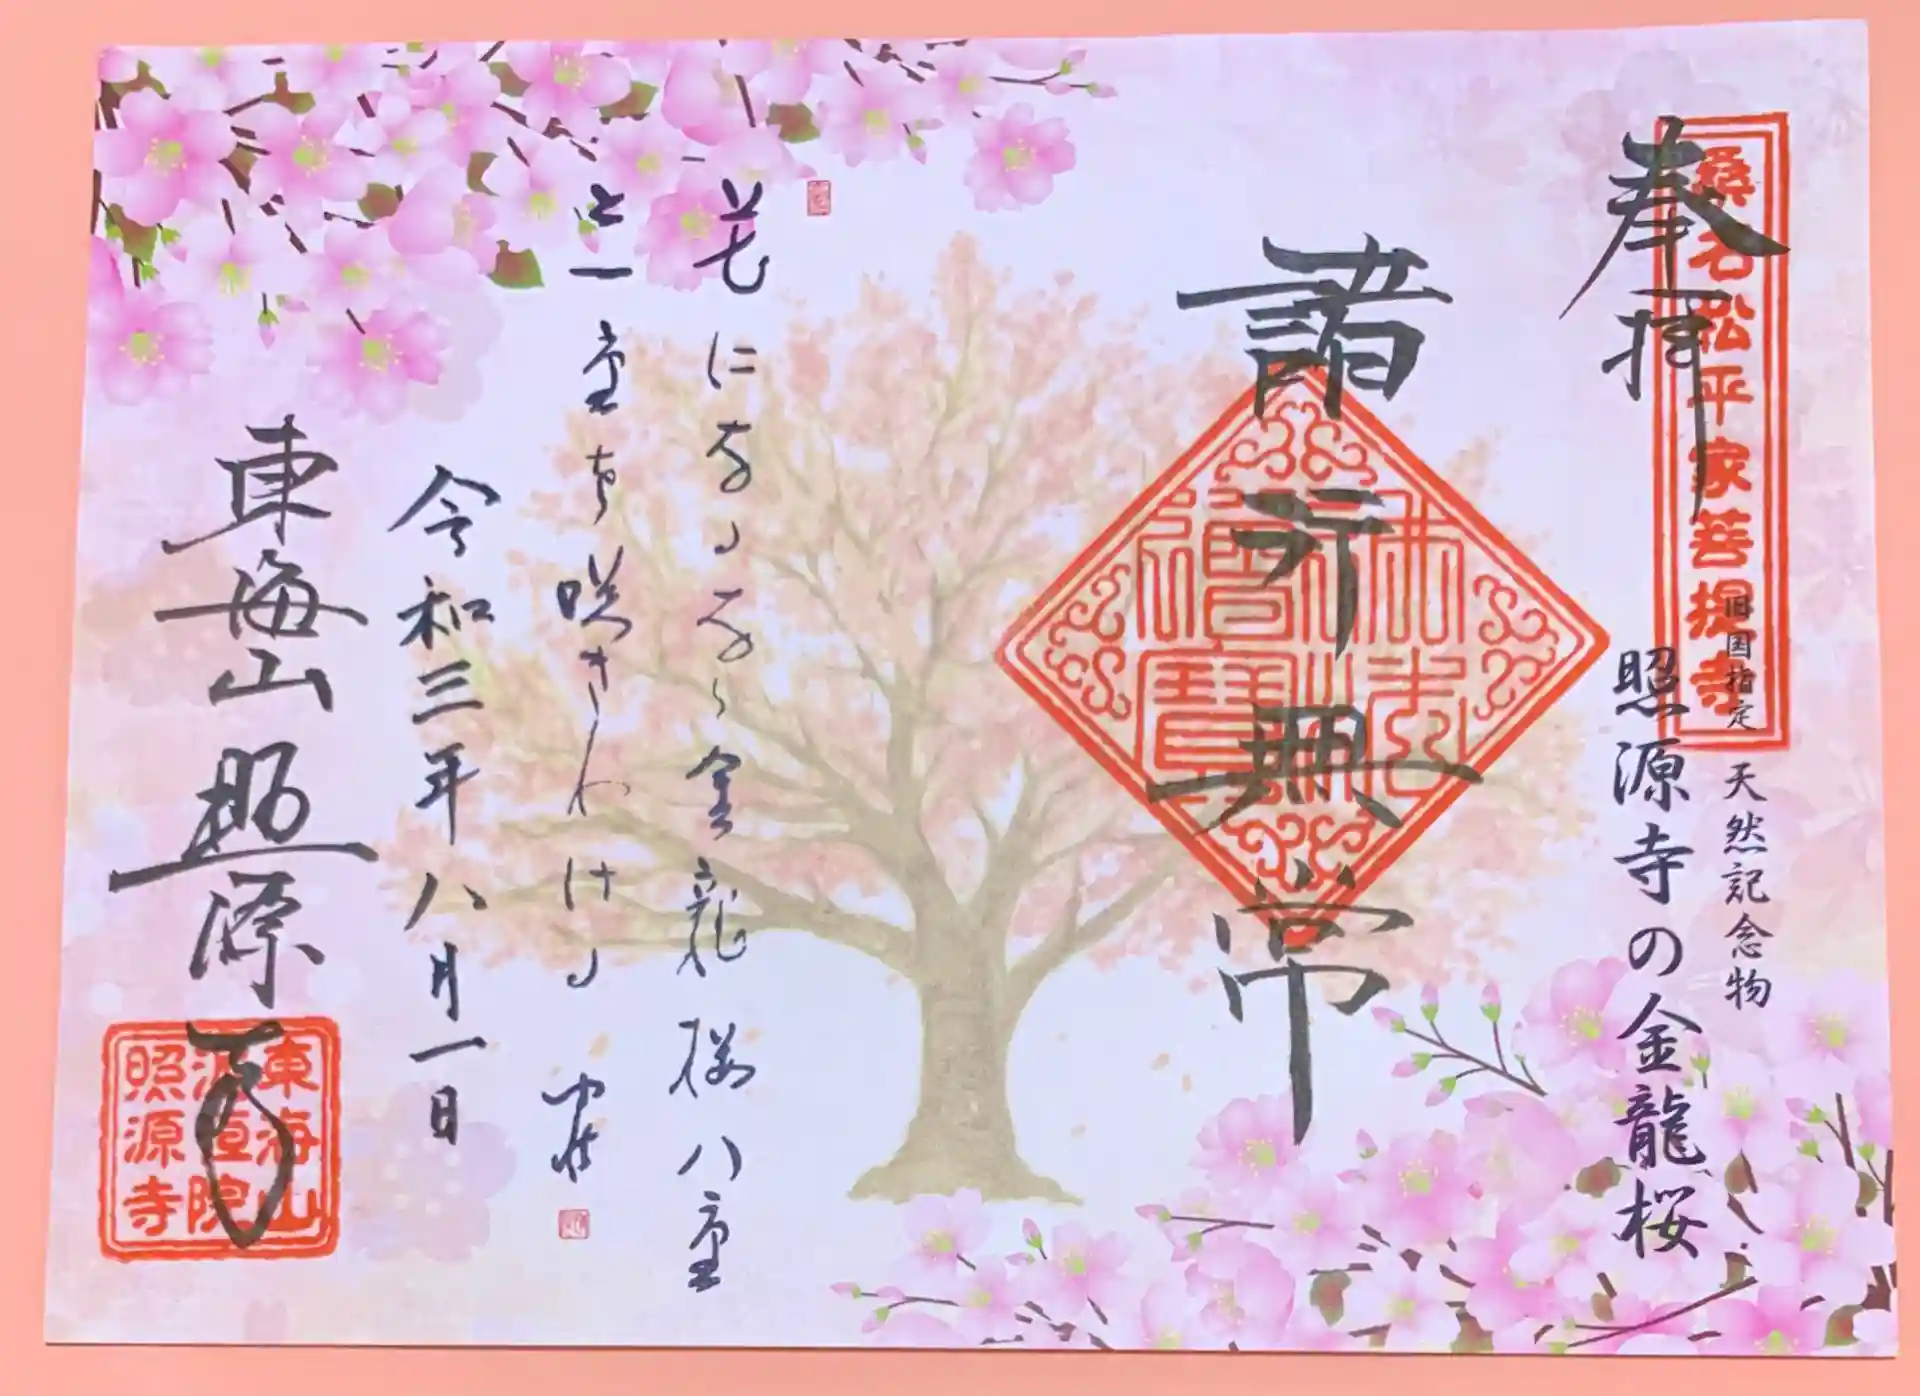 奉拝
桑名松平家菩提寺
旧国指定 天然記念物
照源寺の金龍桜
諸行無常
佛法僧寳
花になるなら金龍桜八重
と一重を咲きわける
令和三年八月一日
東海山照源寺
東海山
源恒院
照源寺